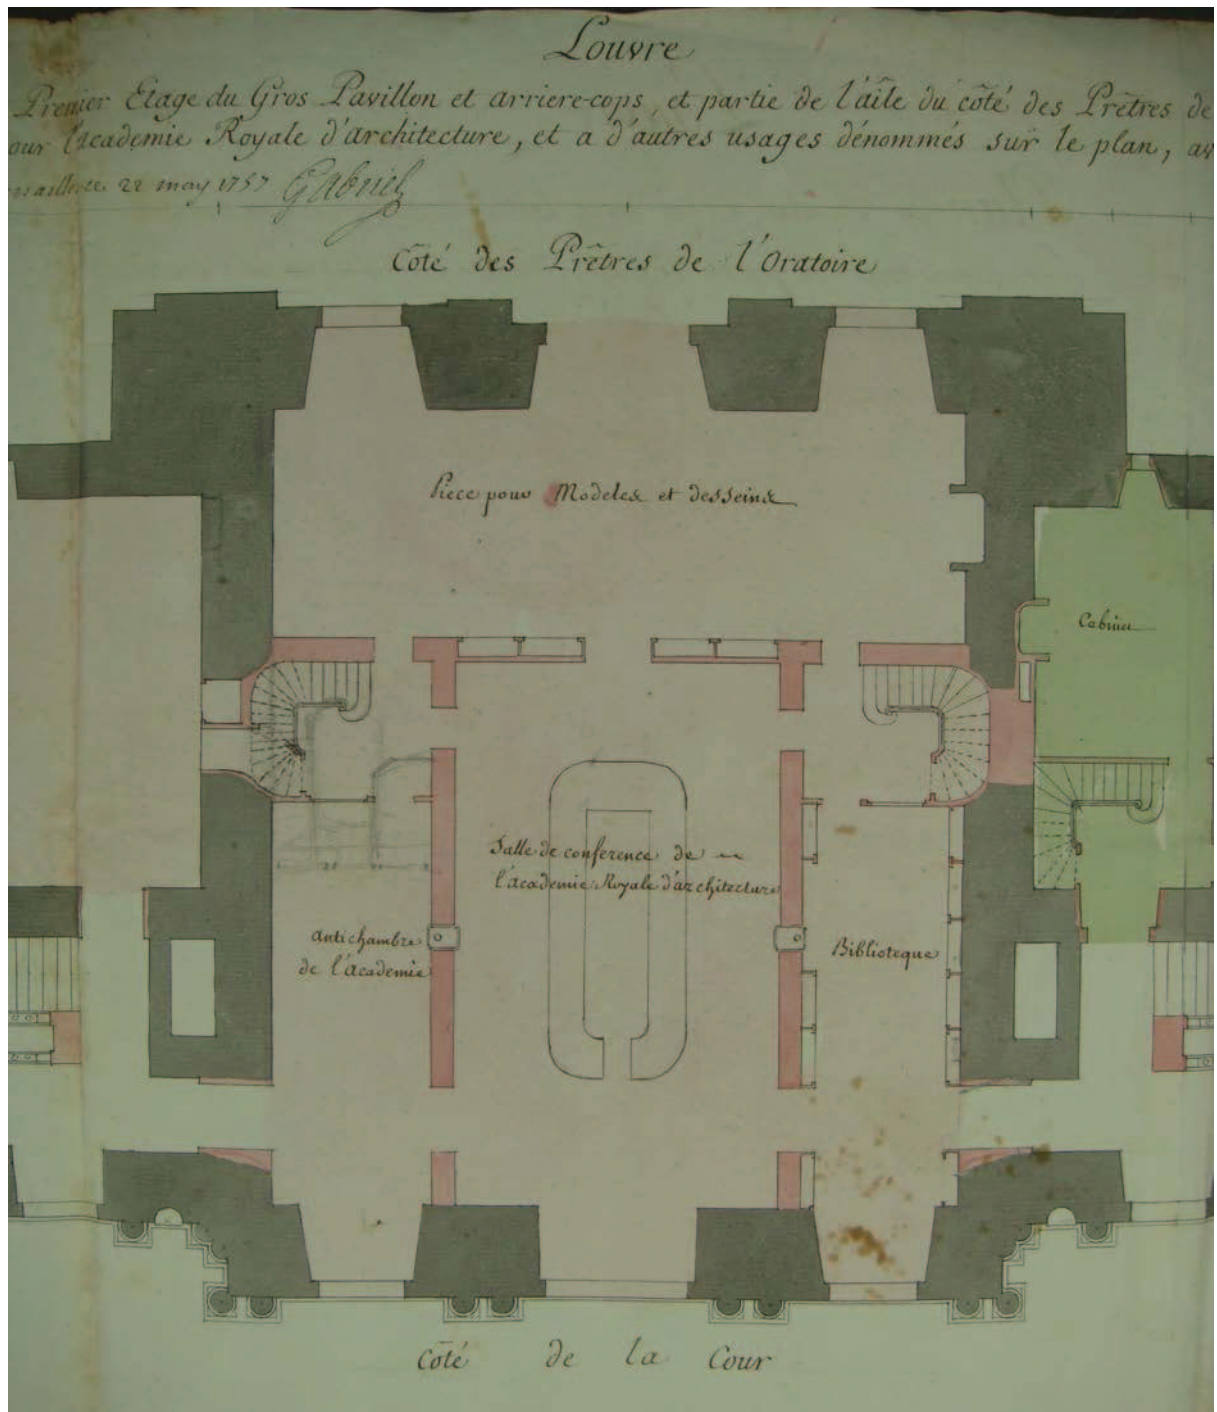 Louvre
Premier Etage du Gros Pavillon et arriere-cops, et partie de l'aîle du côté des Prêtres de
our l'academie Royale d'architecture, et a d'autres usages dénommés sur le plan, av
22 may 1757 Gabriel
Côté des Prêtres de l'Oratoire
Piece pour Modeles et desseins
Cabinet
Salle de conference de
l'academie Royale d'architecture
antichambre
de l'academie
Biblioteque
Côté de la Cour